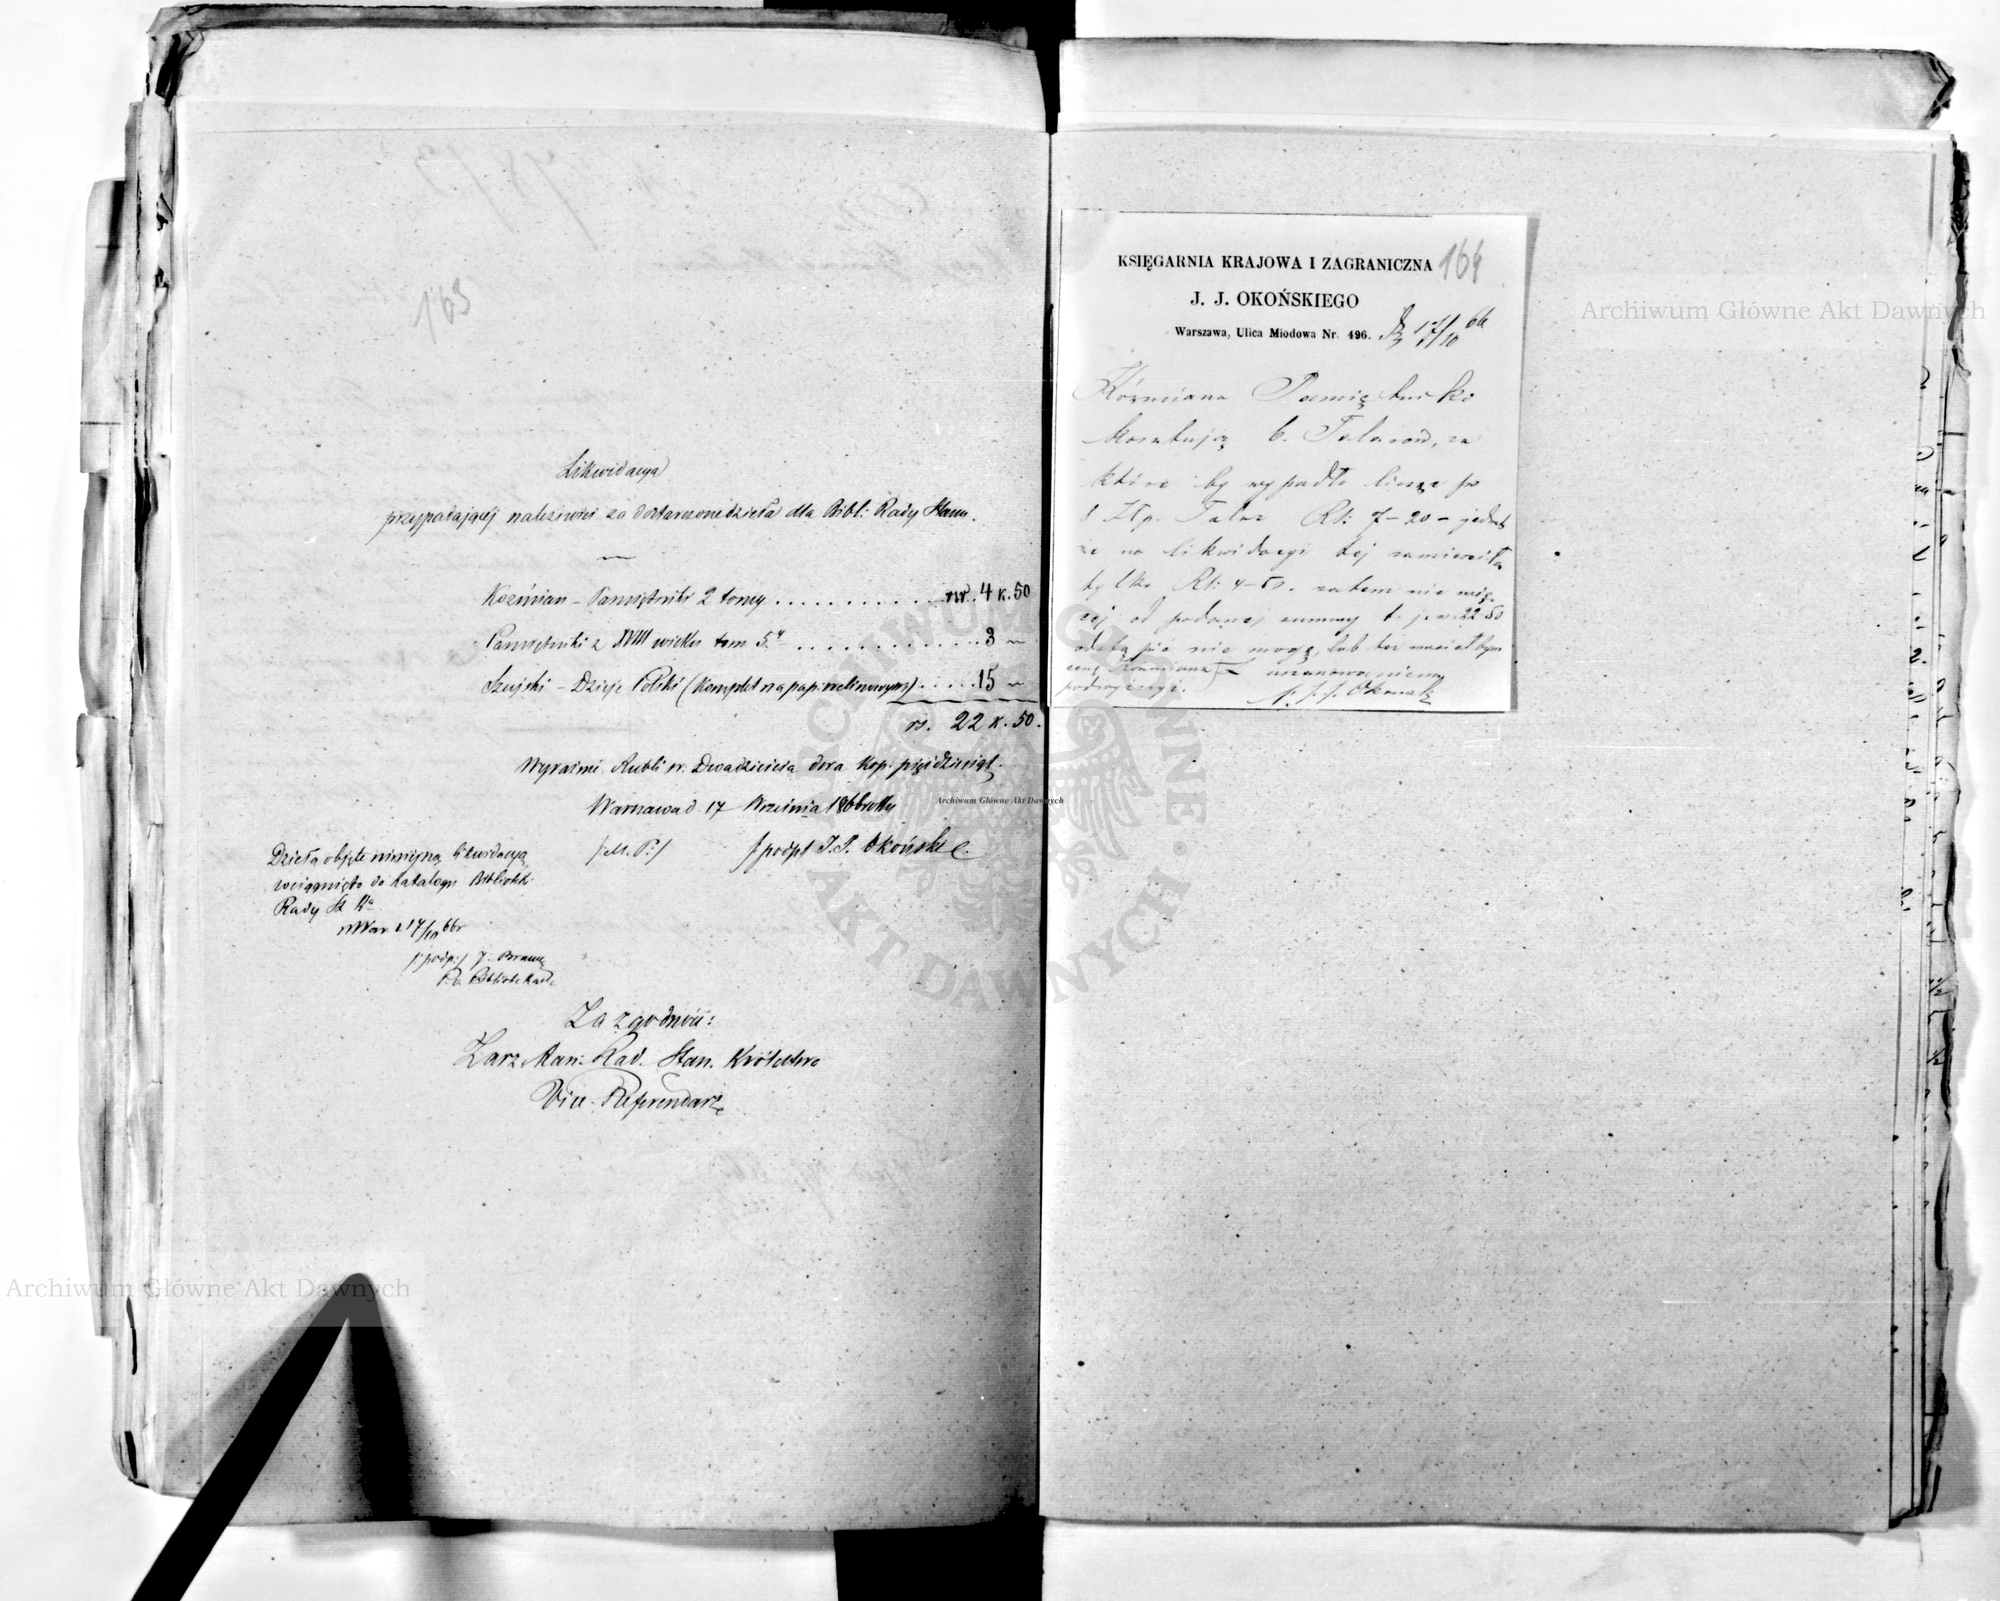 163
Likwidacya
przypadającej należności za dostarczone dzieła dla Bibl: Rady Stanu.
Koźmian – Pamiętniki 2 tomy . . . . . . . . . . . rs. 4 k. 50
Pamiętniki z XVIII wieku tom 5ty . . . . . . . . . . . . 3 –
Szujski – Dzieje Polski (Komplet na pap: welinowym) . . . . . 15 –
rs. 22 k. 50.
Wyraźnie Rubli sr. Dwadzieścia dwa Kop. pięćdziesiąt.
Warszawa d. 17 Września 1866 roku
/:M. P:/ /podp/ J. J. Okoński
Dzieła objęte niniejszą likwidacyą
wciągnięto do Katalogu Bibliotek:
Rady St. Kr.
w War. d 17/10 66 r
/:podp:/ J.
P. o. Bibliotekarz
Za zgodność:
Zarz. Kan: Rad. Stan. Królestwa
Vice-Referendarz
KSIĘGARNIA KRAJOWA I ZAGRANICZNA
164
J. J. OKOŃSKIEGO
Warszawa, Ulica Miodowa Nr. 496. 17/10 66
Koźmiana Pamiętniki
kosztują 6. Talarów, za
które by wypadło licząc po
8 Złp. Talar Rs: 7–20 – jednak
że na likwidacyi tej zamieściłem
tylko Rs: 4–50. zatem nic więcej
od podanej summy t. j. rs. 22–50
odstąpić nie mogę, lub też musiałbym
cenę Koźmiana
podwyższyć. z uszanowaniem
J. J. Okoński
Archiwum Główne Akt Dawnych
Archiwum Główne Akt Dawnych
Archiwum Główne Akt Dawnych
ARCHIWUM GŁÓWNE
AKT DAWNYCH